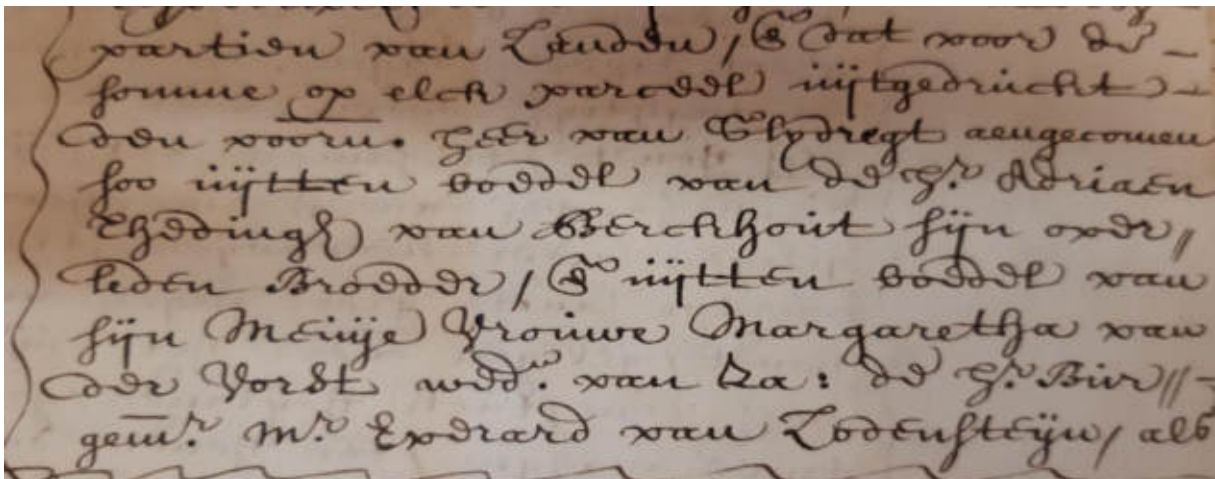 partien van Landen, & dat voor de
somme op elck parceel uijtgedruckt
den voorn. heer van Slydregt aengecomen
soo uijtten boedel van de hr. Adriaen
Thedingh van Berckhout sijn over,
leden Broeder, & uijtten boedel van
sijn Meuije Vrouwe Margaretha van
der Vorst wede. van Za: de hr. Bur//
gemr. Mr. Everard van Lodensteijn, als